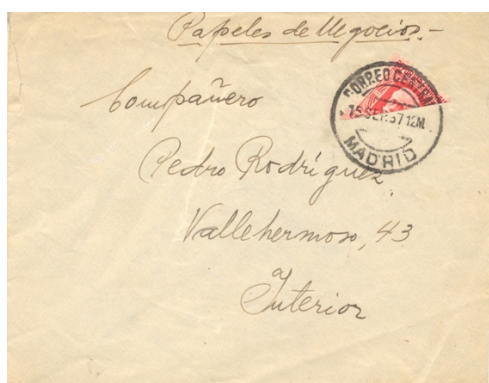 Papeles de Negocios.-
CORREO CENTRAL
15 SEP.37 12M.
MADRID
Compañero
Pedro Rodríguez
Vallehermoso, 43
Interior